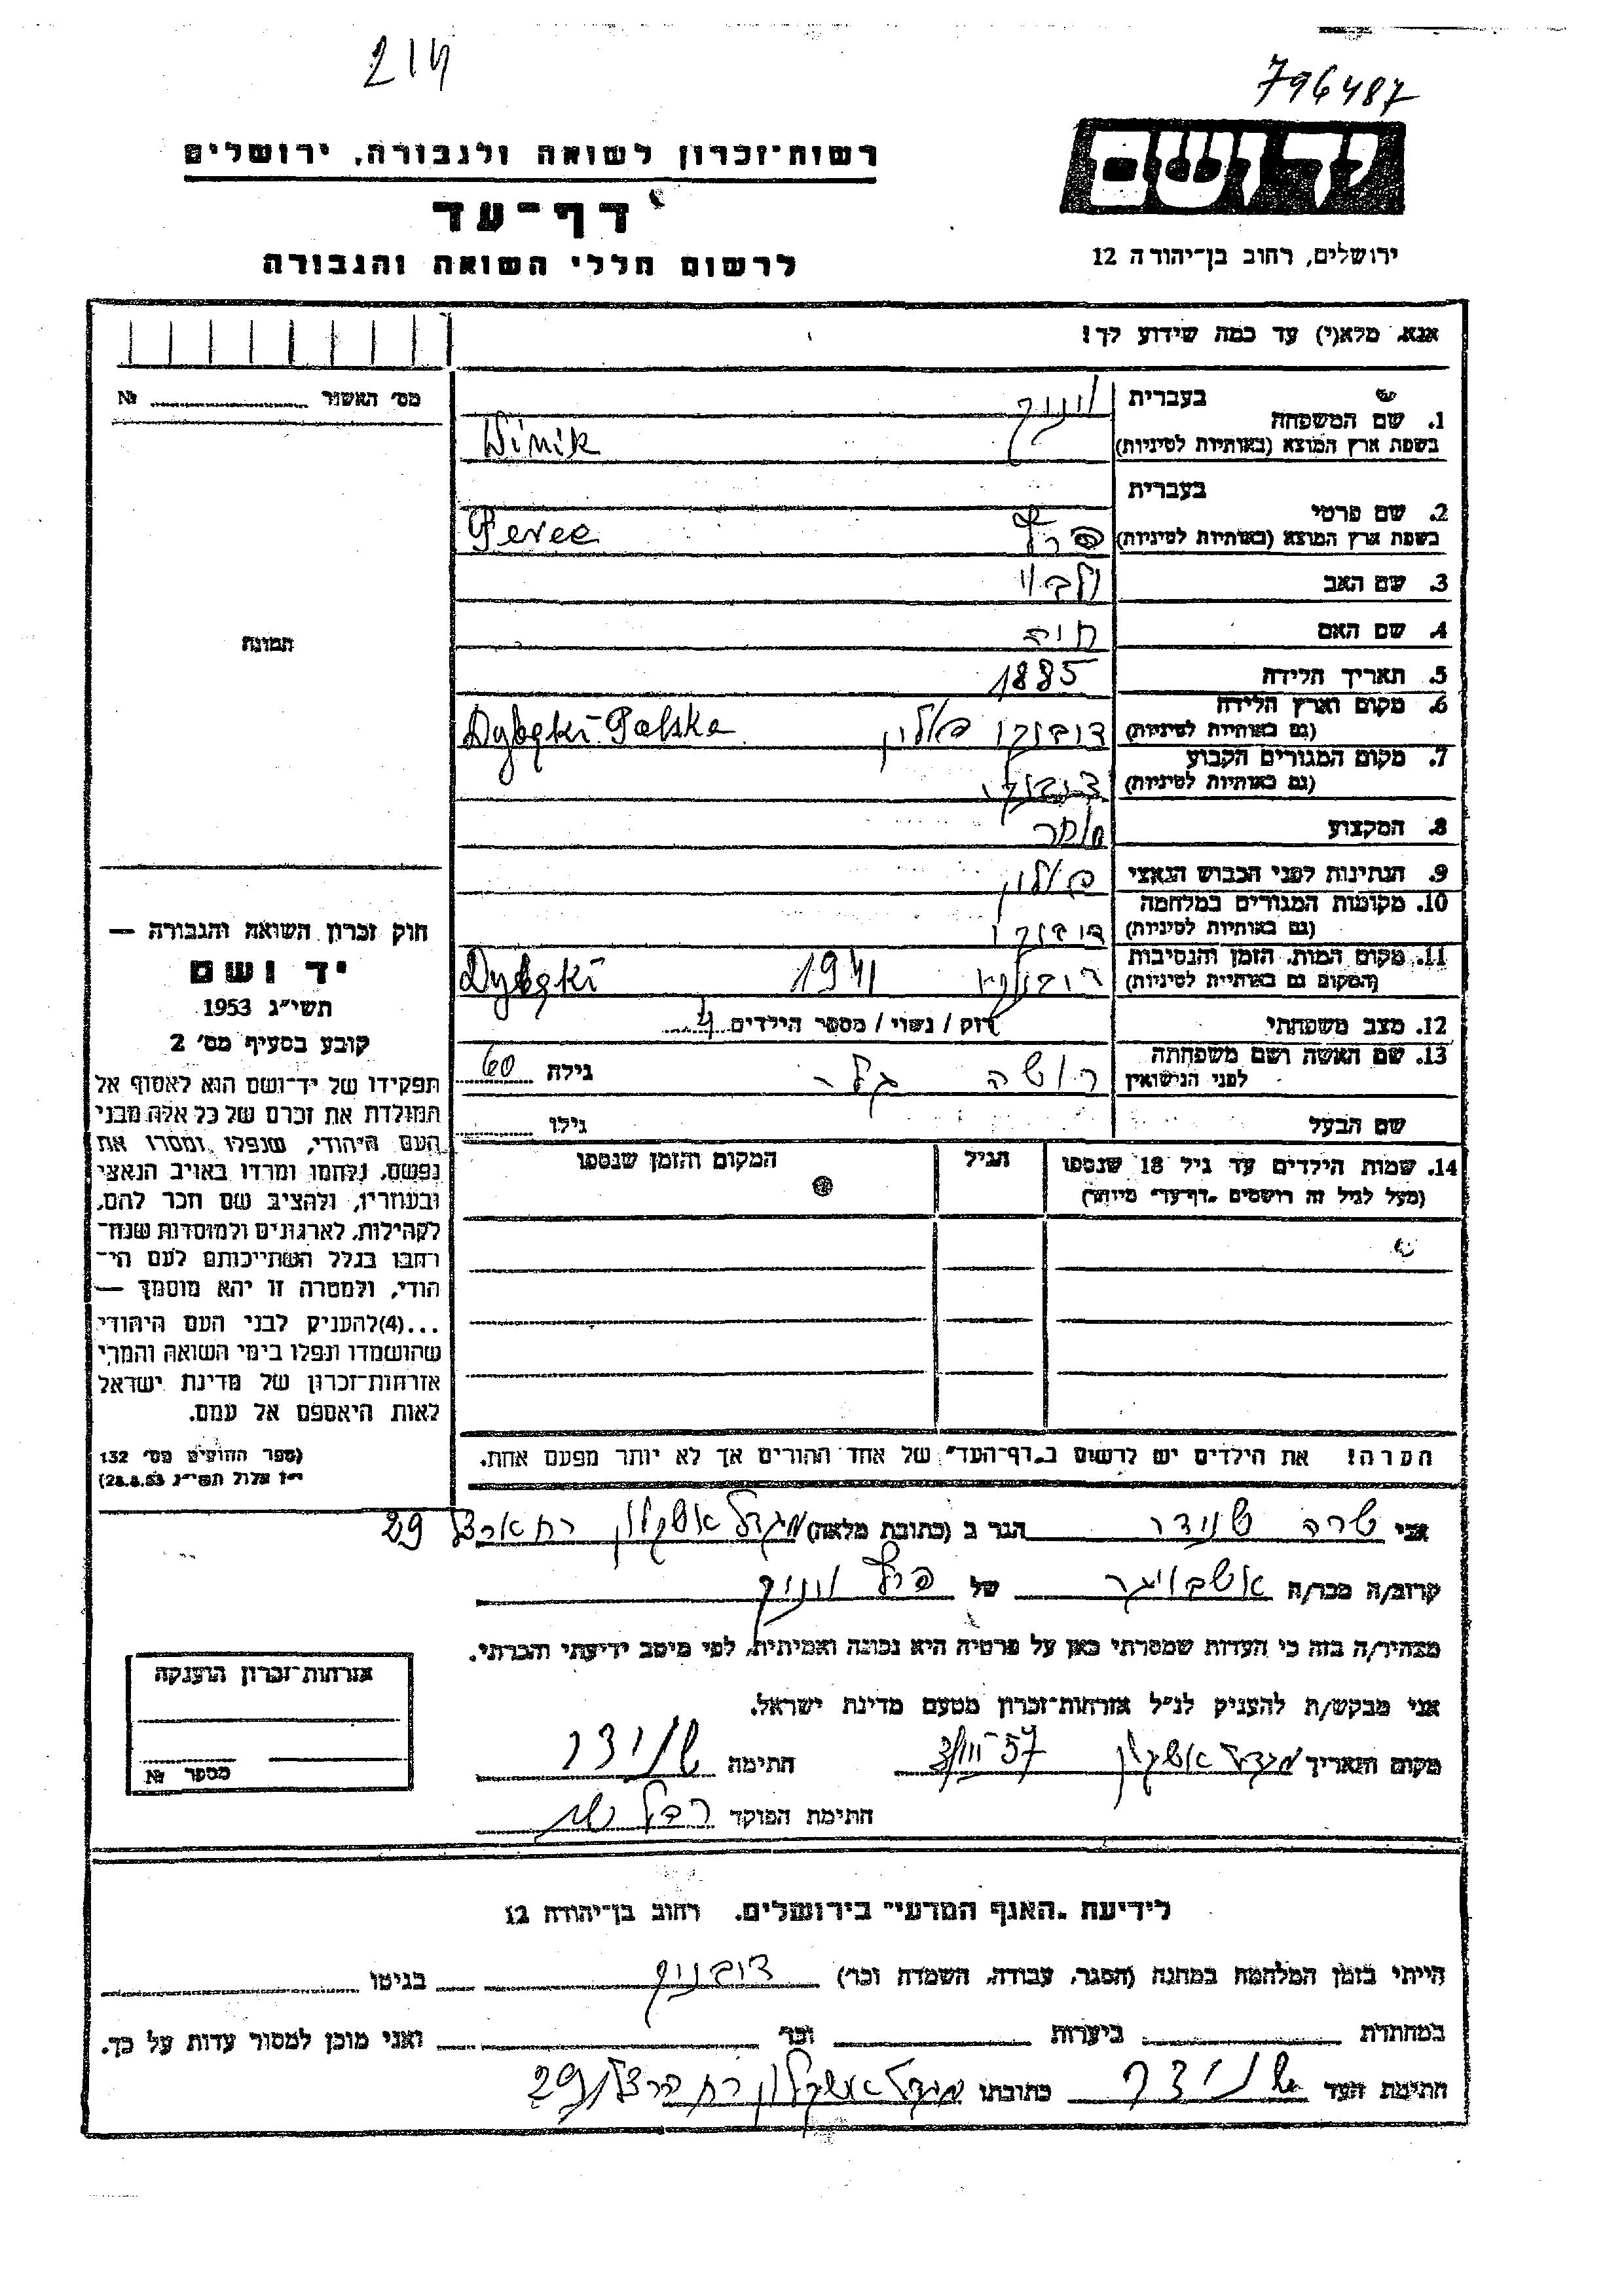 214
796487
יד ושם
רשות־זכרון לשואה ולגבורה, ירושלים
דף־עד
לרשום חללי השואה והגבורה
ירושלים, רחוב בן־יהודה 12
אנא, מלא(י) עד כמה שידוע לך!
מס׳ האשור № 
בעברית
1. שם המשפחה ויניק
בשפת ארץ המוצא (באותיות לטיניות) Winik
בעברית
2. שם פרטי
בשפת ארץ המוצא (באותיות לטיניות) פרץ Perec
3. שם האב
תמונה
4. שם האם חיה
5. תאריך הלידה 1885
6. מקום וארץ הלידה
(גם באותיות לטיניות) פולין Dybąki-Polska
7. מקום המגורים הקבוע
(גם באותיות לטיניות)
8. המקצוע סוחר
9. הנתינות לפני הכבוש הנאצי פולין
10. מקומות המגורים במלחמה
(גם באותיות לטיניות)
11. מקום המות, הזמן והנסיבות
(המקום גם באותיות לטיניות) 1941 Dybąki
12. מצב משפחתי רוק / נשוי / מספר הילדים 4
13. שם האשה ושם משפחתה
לפני הנישואין גילה 60
שם הבעל גילו
14. שמות הילדים עד גיל 18 שנספו הגיל המקום והזמן שנספו
(מעל לגיל זה רושמים „דף־עד״ מיוחד)
הערה! את הילדים יש לרשום ב„דף־העד״ של אחד ההורים אך לא יותר מפעם אחת.
חוק זכרון השואה והגבורה —
יד ושם
תשי״ג 1953
קובע בסעיף מס׳ 2
תפקידו של יד־ושם הוא לאסוף אל
המולדת את זכרם של כל אלה מבני
העם היהודי, שנפלו ומסרו את
נפשם, נלחמו ומרדו באויב הנאצי
ובעוזריו, ולהציב שם וזכר להם,
לקהילות, לארגונים ולמוסדות שנח־
רבו בגלל השתייכותם לעם הי־
הודי, ולמטרה זו יהא מוסמך —
...(4) להעניק לבני העם היהודי
שהושמדו ונפלו בימי השואה והמרי
אזרחות־זכרון של מדינת ישראל
לאות היאספם אל עמם.
(ספר החוקים מס׳ 132
י״ז אלול תשי״ג 28.8.53)
אני שרה שניידר הגר ב (כתובת מלאה) מגדל אשקלון 29
קרוב/ה מכר/ה של פרץ ויניק
מצהיר/ה בזה כי העדות שמסרתי כאן על פרטיה היא נכונה ואמיתית, לפי מיטב ידיעתי והכרתי.
אני מבקש/ת להעניק לנ״ל אזרחות־זכרון מטעם מדינת ישראל.
מקום ותאריך מגדל אשקלון 57 חתימה שניידר
חתימת הפוקד
אזרחות־זכרון הוענקה
מספר №
לידיעת „האגף המדעי״ בירושלים, רחוב בן־יהודה 12
הייתי בזמן המלחמה במחנה (הסגר, עבודה, השמדה וכו׳) בגיטו
במחתרת ביערות וכו׳ ואני מוכן למסור עדות על כך.
חתימת העד שניידר כתובתו מגדל אשקלון רח הרצל 29